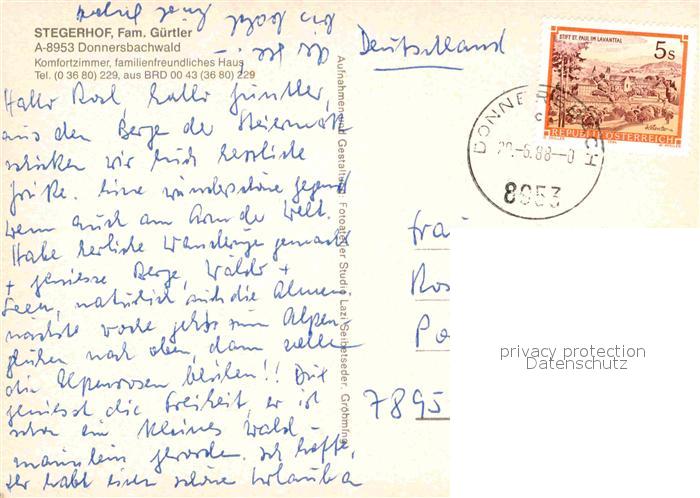 STEGERHOF, Fam. Gürtler
A-8953 Donnersbachwald
Komfortzimmer, familienfreundliches Haus
Tel. (0 36 80) 229, aus BRD 00 43 (36 80) 229
Hallo Rosl, hallo Günther,
aus den Berge der Steiermark
schicken wir Euch herzliche
Grüße. Eine wunderschöne Gegend
wenn auch am Arm der Welt.
Habe herliche Wanderunge gemacht
+ geniesse Berge, Wälder +
Seen, natürlich auch die Almen
nächste Woche gehts zum Alpen-
glühen nach oben, dann sollen
die Alpenrosen blühen!!
geniesst die Freiheit, er ist
schon ein kleines Wald-
mannlein geworden. Ich hoffe,
Ihr habt einen schöne Urlaub
Aufnahmen und Gestaltung: Fotoatelier Studio Lazi Seibetseder, Gröbming
Deutschland
STIFT ST. PAUL IM LAVANTTAL
5s
REPUBLIK ÖSTERREICH
DONNERSBACH
-6.88-0
8953
Fra
Ros
Po
7895
privacy protection
Datenschutz